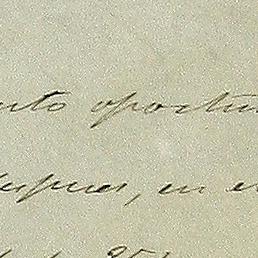 nto oportun
despues, en e